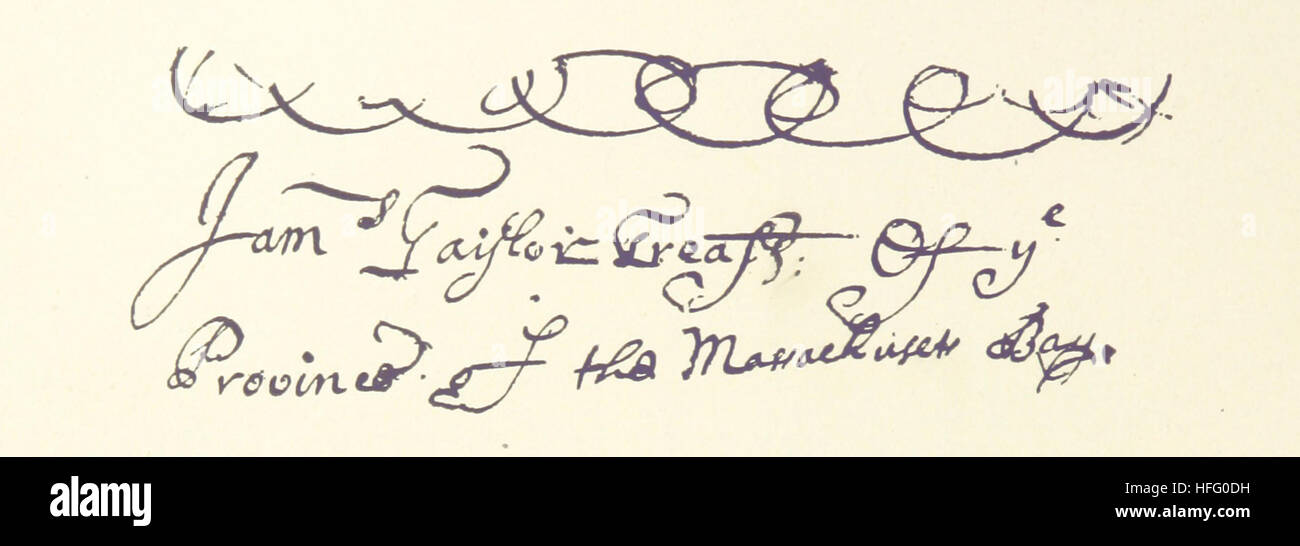 Jamˢ Taylor Treasʳ: Of yᵉ
Province of the Massachusets Bay.
alamy
Image ID: HFG0DH
www.alamy.com